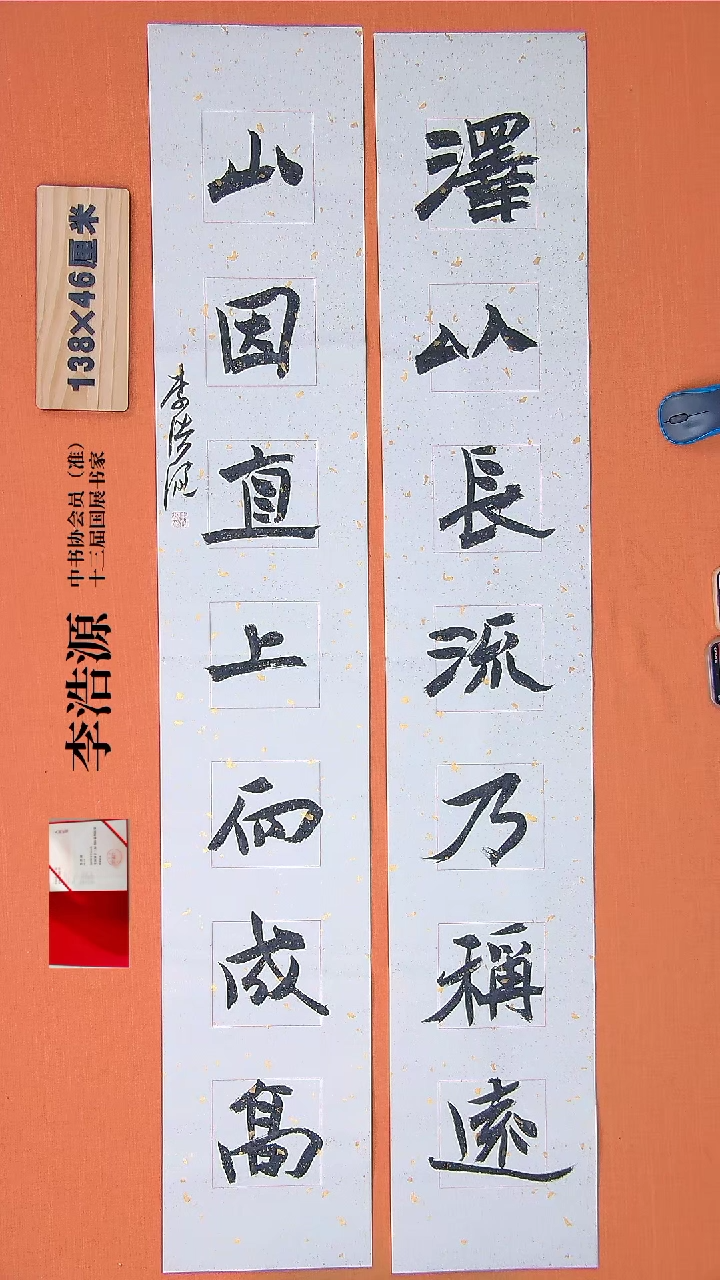 澤从長流乃稱遠
山因直上而成高
李浩源
138×46厘米
中书协会员（准）
十三届国展书家
李浩源